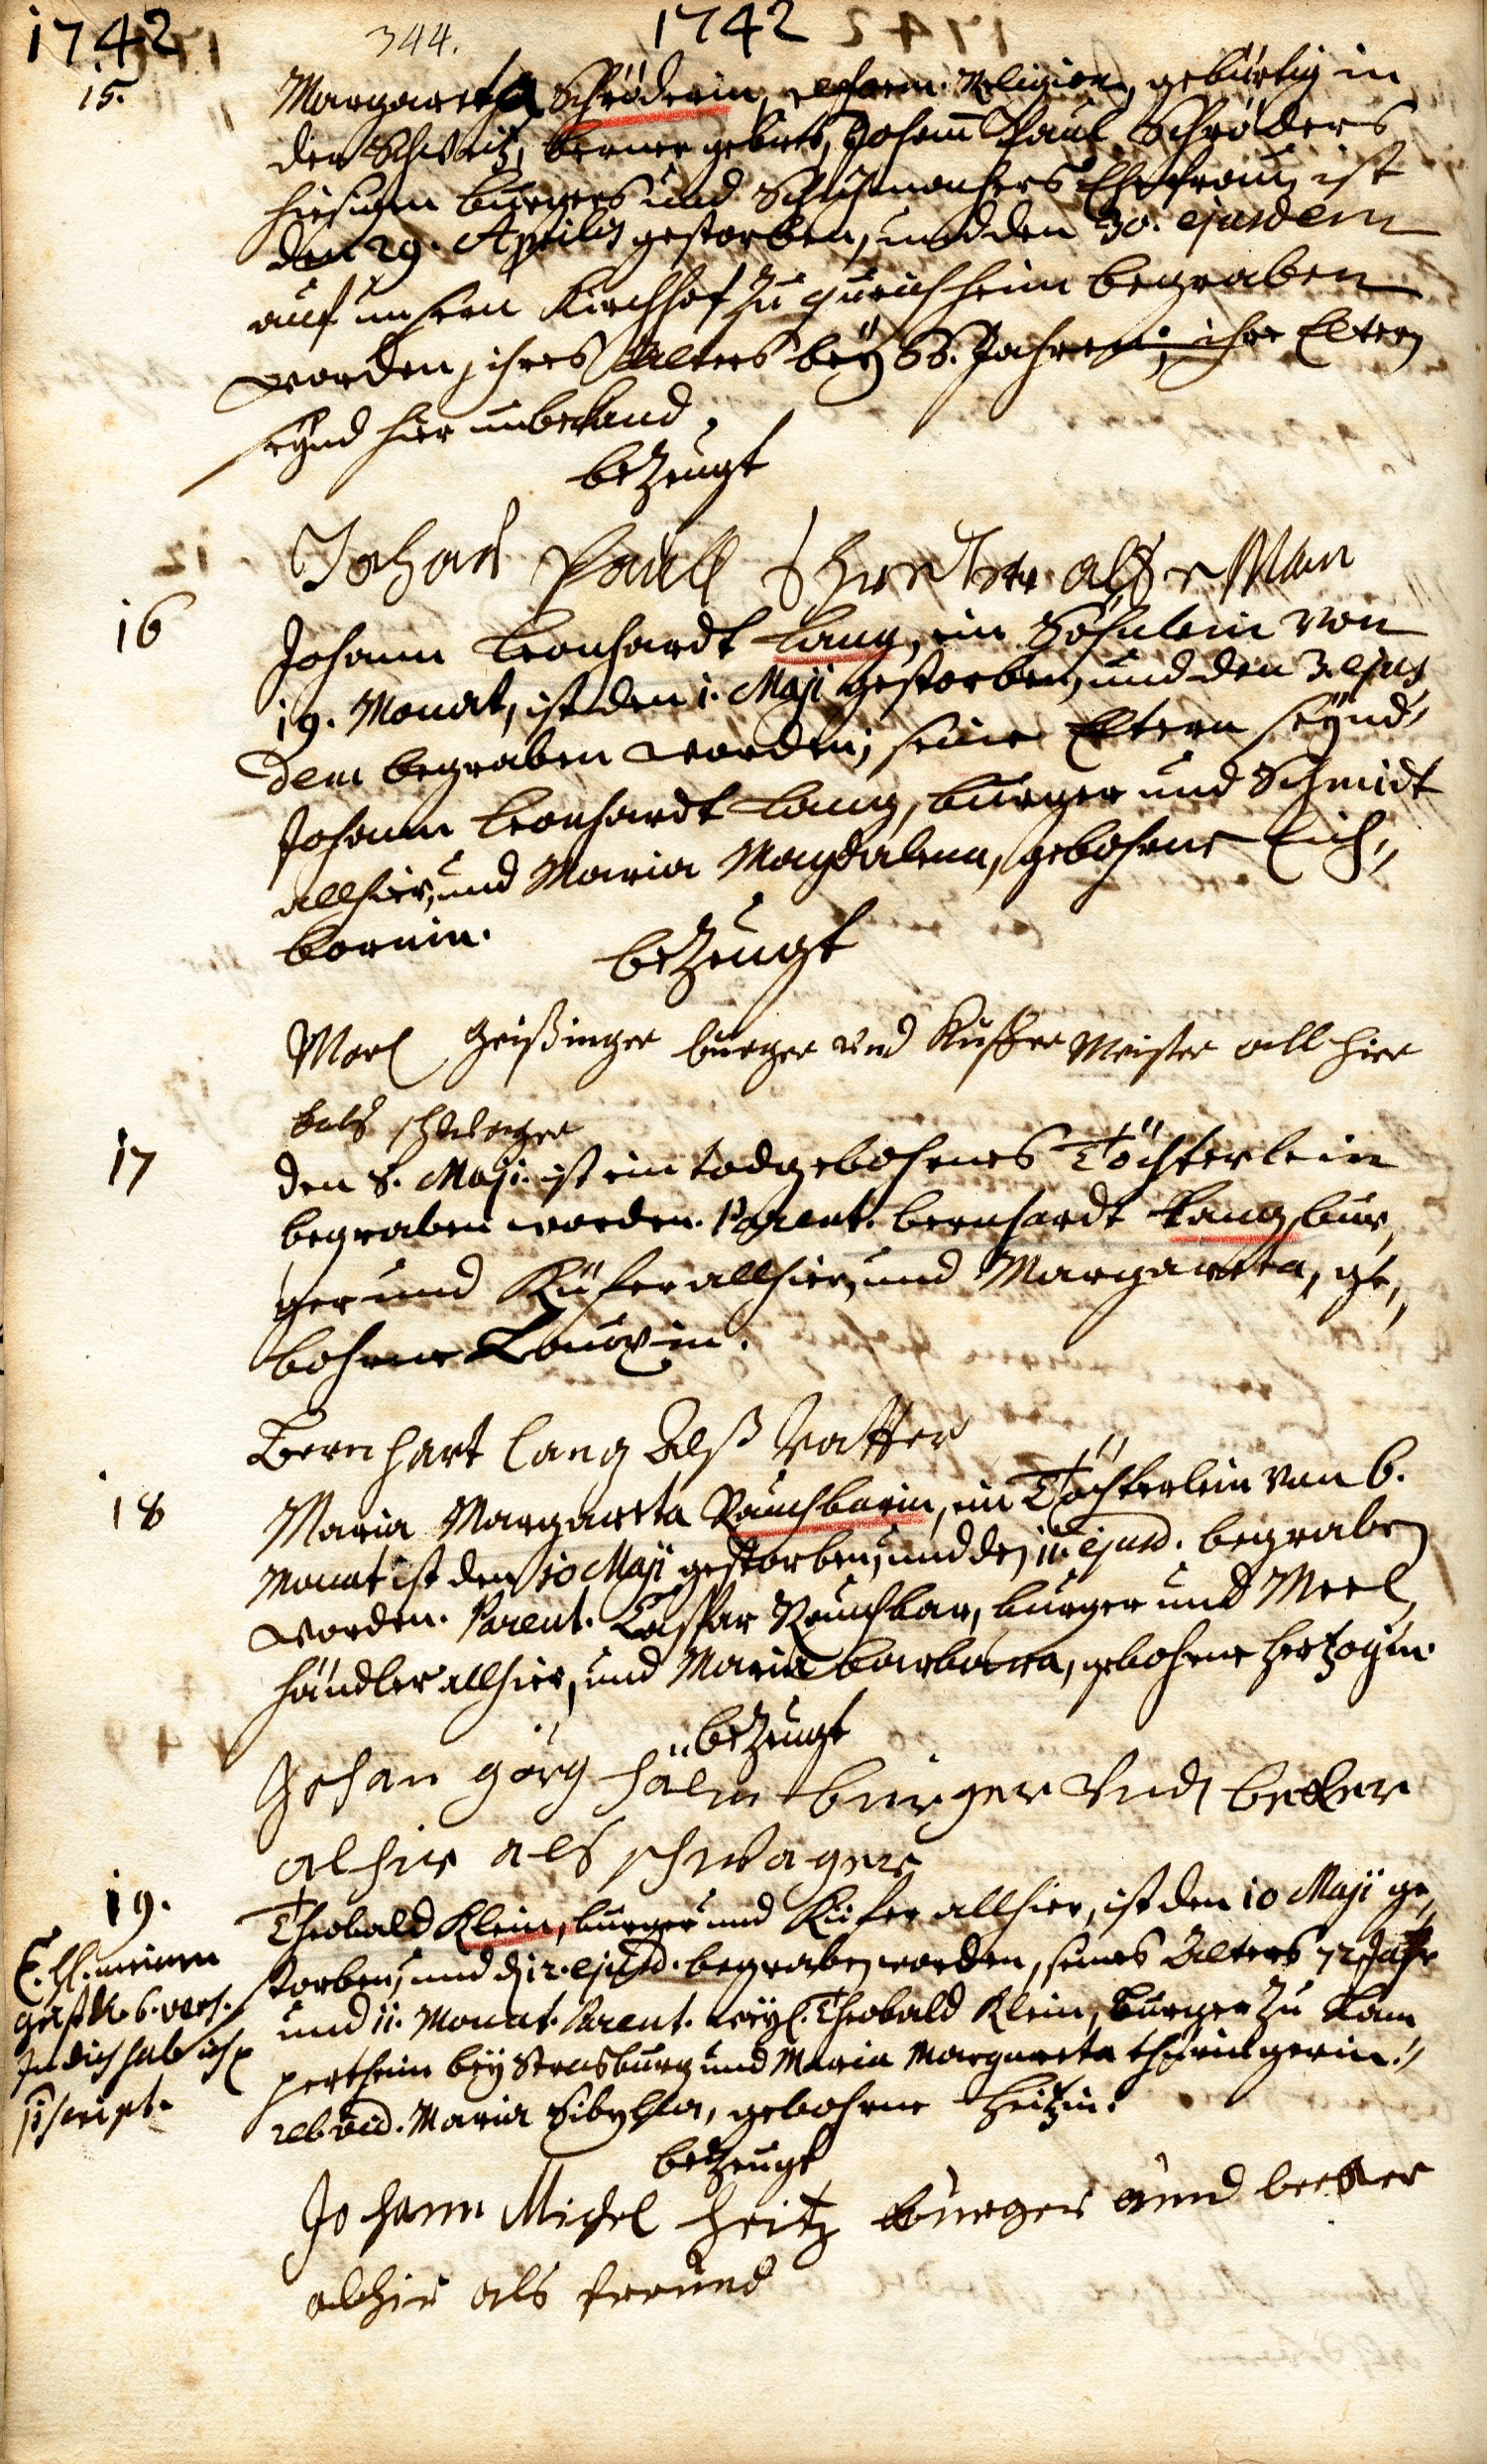 1742 344. 1742
15. Margareta Schröderin, reform. Religion, gebürtig in
der Schweitz, Berner gebiets, Johann Paul Schröders
hiesigen burgers und Schuhmachers Ehefrau, ist
den 29. Aprilis gestorben, und den 30. ejusdem
auf unsern Kirchhof zu begraben
worden, ihres Alters bey 88. Jahren; ihre Eltern
seynd hier unbekand.
bezeugt
Johans Paull als Man
16 Johann Leonhardt Lang, ein Söhnlein von
19. Monat, ist den 1. Maji gestorben, und den 3. ejus
dem begraben worden; seine Eltern seynd
Johann Leonhardt Lang, burger und Schmidt
allhier, und Maria Magdalena, gebohrne Eich,,
bornin.
bezeugt
Geißinger burger und Küffer Meister all hier
als schwager
17 den 8. Maji. ist ein todgebohrnes Töchterlein
begraben worden. Parent. Bernhardt Lang, bur,,
ger und Küfer allhier, und Margareta, ge,,
bohrne
Bernhart lang Alß Vatter
18 Maria Margareta Rauchbarin, ein Töchterlein von 6.
Monat ist den 10 Maji gestorben, und den 11. ejusd. begraben
worden. Parent. Caspar Rauchbar, burger und Meel,,
händler allhier, und Maria Barbara, gebohrne Hertzogin.
bezeugt
Johan görg burger Und becker
alhier als schwager
19. Theobald Klein, burger und Küfer allhier, ist den 10 Maji ge,,
storben, und d. 12. ejusd. begraben worden, seines Alters 72 Jahr
und 11. Monat. Parent. weyl. Theobald Klein, burger zu Lam
pertheim bey Strasburg und Maria Margareta Thüringerin.
rel. vid. Maria Sibylla, gebohrne Heitzin.
bezeugt
Johann Michel Heitz burger und becker
alhier als freund
meinen
6. vers.
In dich hab ich
script.